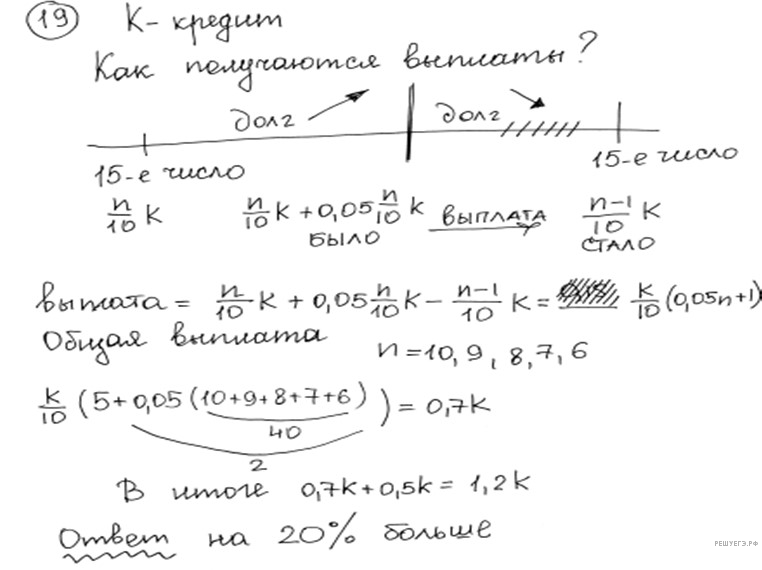 19 К- кредит
Как получаются выплаты?
долг долг
15-е число 15-е число
n/10 К n/10 К + 0,05 n/10 К выплата n-1/10 К
было стало
выплата = n/10 К + 0,05 n/10 К - n-1/10 К = К/10 (0,05n+1)
Общая выплата n=10, 9, 8, 7, 6
К/10 (5+0,05(10+9+8+7+6)) = 0,7К
40
2
В итоге 0,7К+0,5К = 1,2К
Ответ на 20% больше
РЕШУЕГЭ.РФ